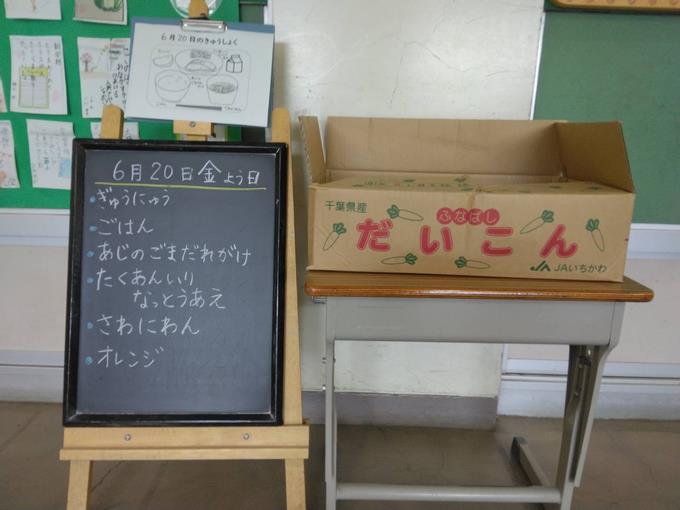 6月20日のきゅうしょく
6月20日金よう日
ぎゅうにゅう
ごはん
あじのごまだれがけ
たくあんいり
なっとうあえ
さわにわん
オレンジ
千葉県産
ふなばし
だいこん
JAいちかわ